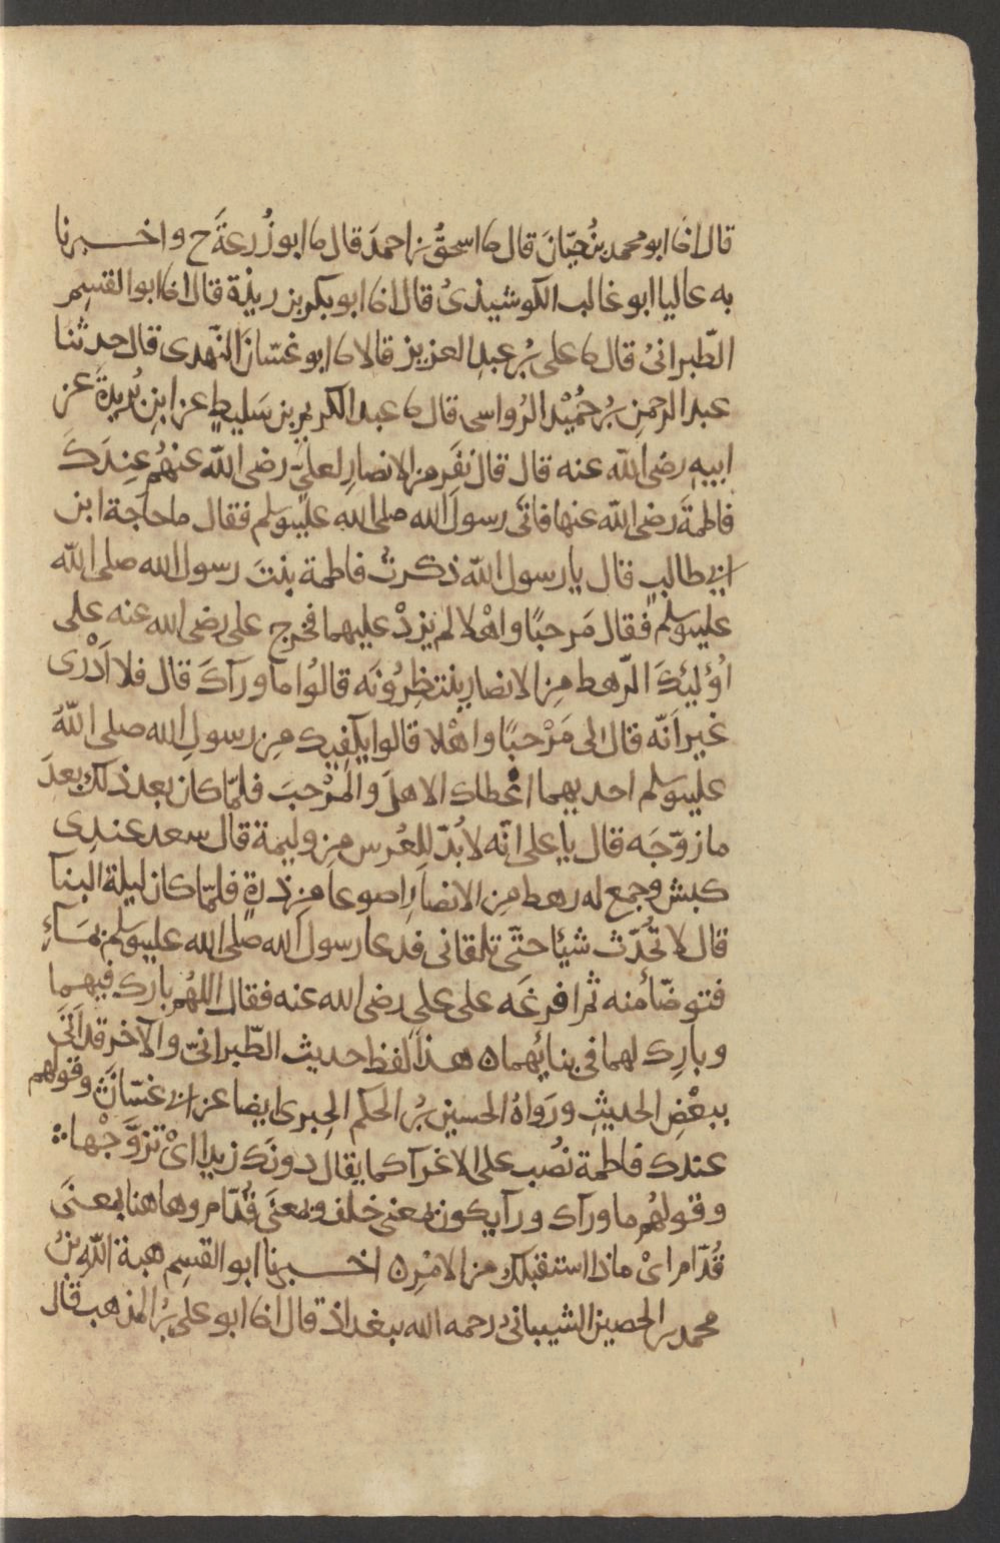 قال انا ابو محمد بنُ حيّانَ قال نا اسحقُ بن احمدَ قال نا ابو زُرعةَ ح واخـــبرنا
به عاليا ابو غالب الكوشيذىُ قال انا ابو بكر بن ريذة قال انا ابو القسِمِ
الطّبرانىُ قال نا على بنُ عبدِ العزيز قالا نا ابو غسّان النَّهدى قال حدثنا
عبد الرحمنِ بنُ حُمَيْد الرُواسى قال نا عبد الكريمِ بن سَليطٍ عن ابنِ بُريدةَ عن
ابيهِ رضى الله عنه قال قالَ نفَر من الانصارِ لعليّ رضى الله عنهُم عِندَكَ
فاطمةَ رضى الله عنها فاتَى رسولَ الله صلى الله عليه وسلم فقال ما حاجَة ابن
ابى طالبٍ قال يا رسول الله ذكرتُ فاطمة بِنتَ رسول الله صلى الله
عليه وسلم فقال مَرحبًا واهْلا لم يزدْ عليهما فخرج على رضى الله عنه على
اُوْلئِكَ الرّهط مِن الانصارِ ينتظِرُونَه قالوُا ما ورآكَ قال فلا اَدْرى
غير اَنّه قال لى مَرْحبًا واهْلا قالوا يكفيك مِن رسولِ الله صلى اللهُ
عليه وسلم احديهما اعطاك الاهلَ والمَرْحبَ فلمّا كان بعد ذلك بعدَ
ما زوّجَه قال يا على انّه لا بُدّ للعُرس مِن وليمة قال سعد عندى
كبش وجمع له رهط مِن الانصارِ اصوعا مِن ذرةٍ فلمّا كان ليلة البنآ
قال لا تُحدّث شيئا حتّى تلقانى فدعا رسولَ الله صلى الله عليه وسلم بمَــآءٍ
فتوضّأ منه ثم افرغَه على علىٍ رضى الله عنه فقال اللهُم بارك فيهما
وبارِك لهما فى بنائهما ه هذا لفظ حديث الطّبرانىّ والآخر قد اَتَى
ببعْضِ الحديثِ ورَواهُ الحسين بنُ الحكم الحِبرى ايضا عن ابى غسّانَ وقولهم
عندك فاطمةَ نُصب على الاغرآ كما يقال دونَك زيدا اىْ تزوّجْها ∴
وقولهُم ما ورآك ورآ يكون بمعنى خلف وبمعنَى قُدّام وهاهنا بمعنَى
قُدّام اىْ ماذا استقبلك من الامْرِ ه اخــــبرنا ابو القسِم هبة الله بنُ
محمد بن الحصين الشيبانىُ رحمه الله ببغداذ قال انا ابو على بنُ المذهب قال